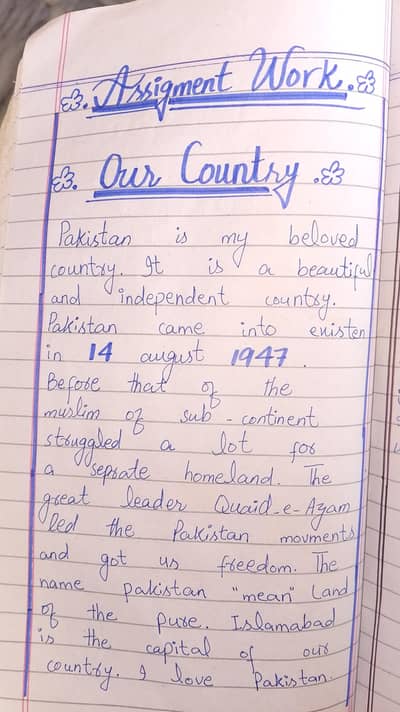 Assigment Work.
Our Country.
Pakistan is my beloved
country. It is a beautiful
and independent country.
Pakistan came into existen
in 14 august 1947.
Before that of the
muslim of sub-continent
struggled a lot for
a seprate homeland. The
great leader Quaid-e-Azam
led the Pakistan movments
and got us freedom. The
name pakistan "mean" Land
of the pure. Islamabad
is the capital of our
country. I love Pakistan.